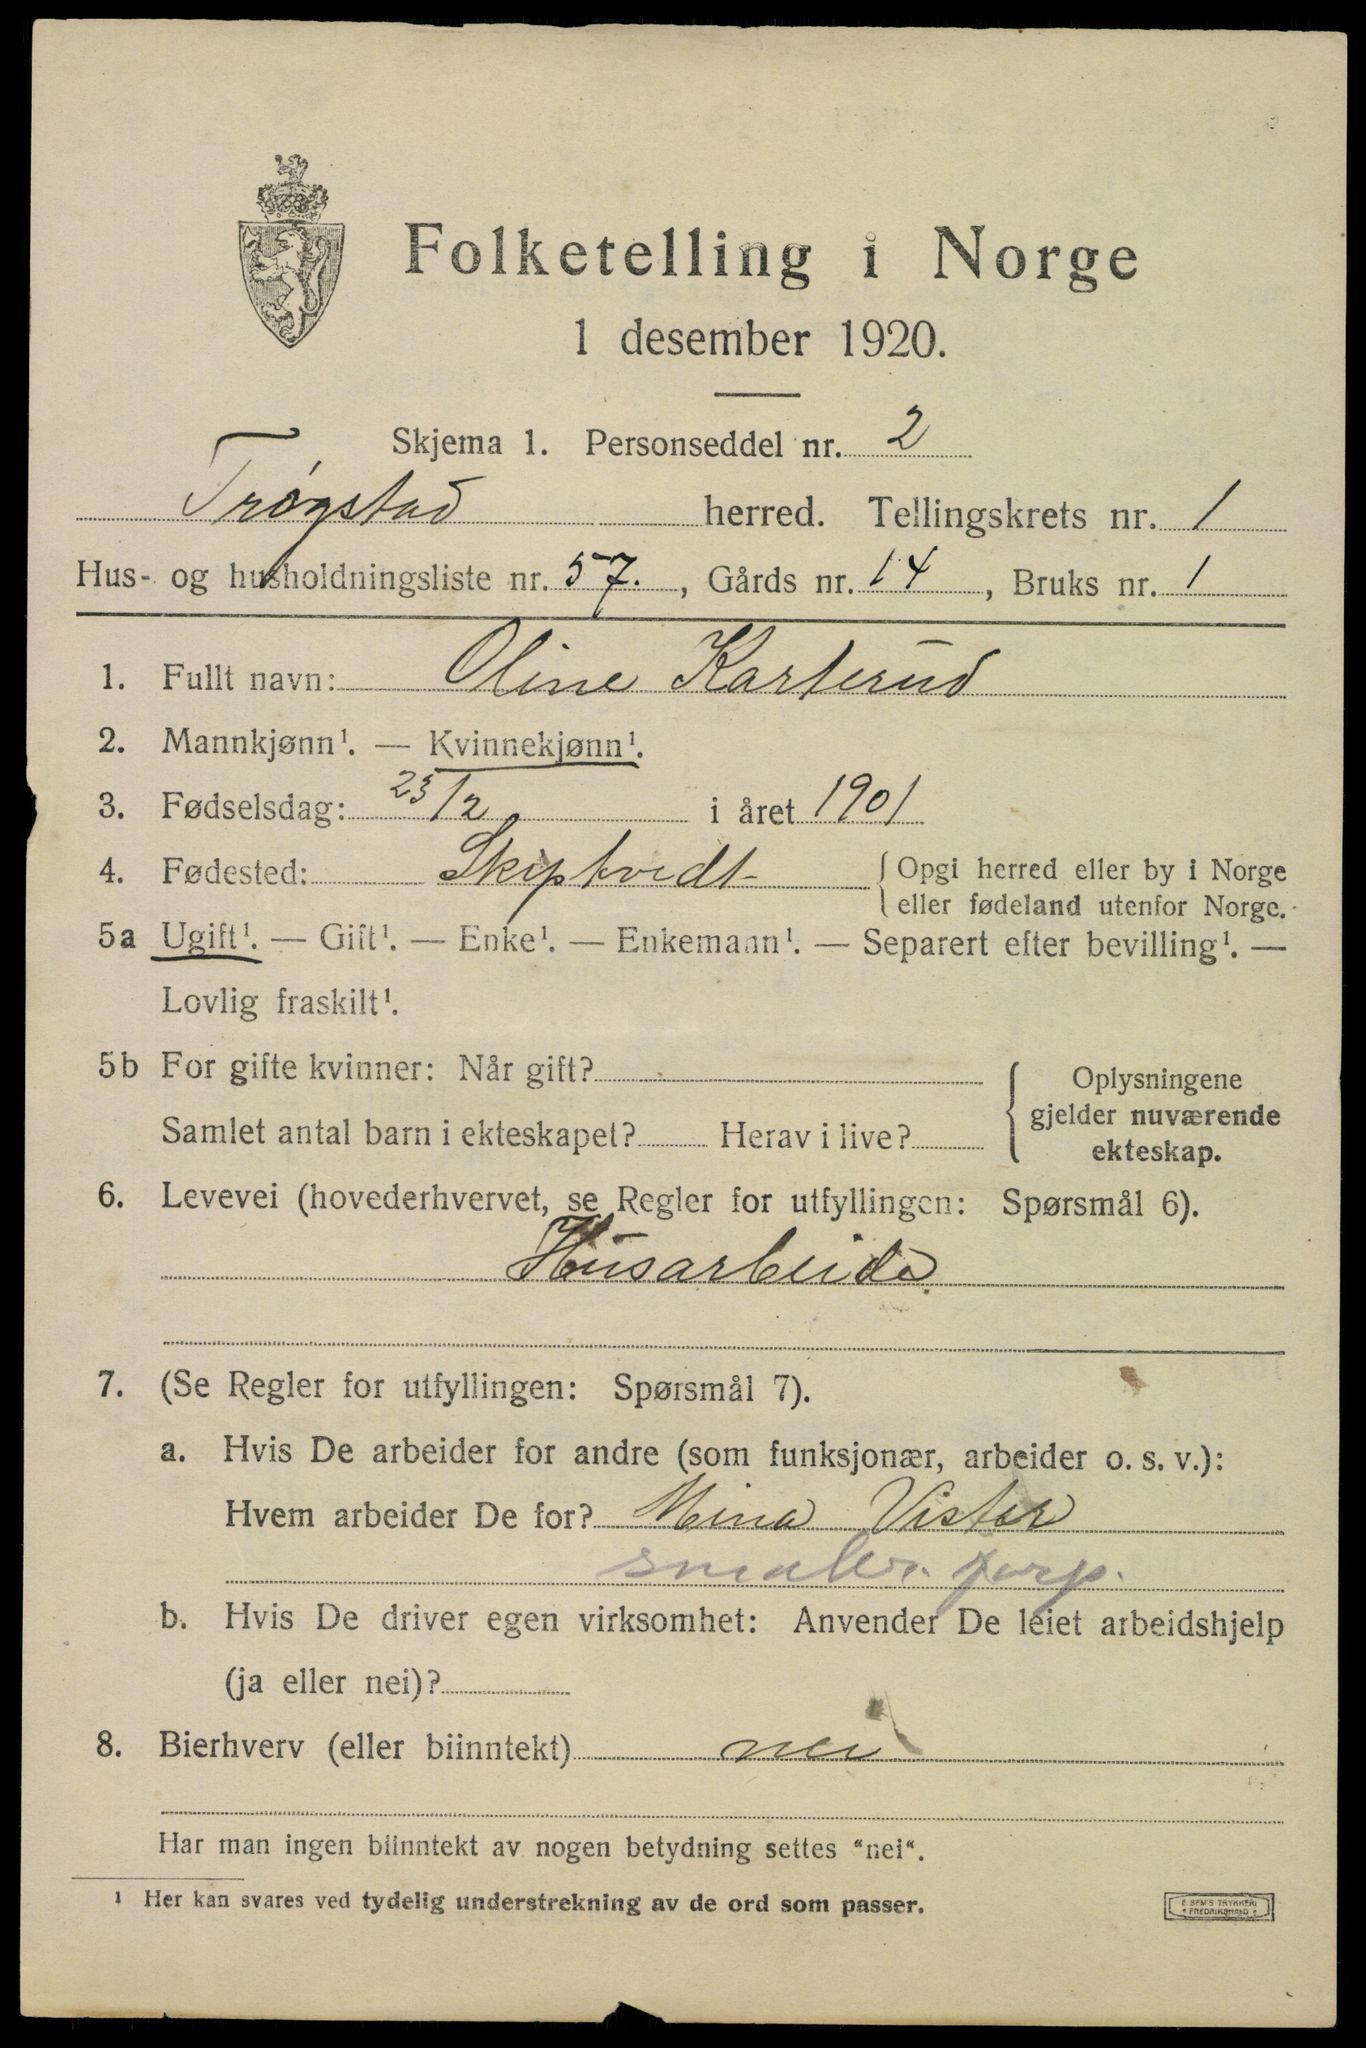 Folketelling i Norge
1 desember 1920.
Skjema 1. Personseddel nr. 2
Trøgstad herred. Tellingskrets nr. 1
Hus- og husholdningsliste nr. 57., Gårds nr. 14, Bruks nr. 1
1. Fullt navn: Oline Karterud
2. Mannkjønn¹. — Kvinnekjønn¹.
3. Fødselsdag: 23/2 i året 1901
4. Fødested: Skiptvedt {Opgi herred eller by i Norge
eller fødeland utenfor Norge.
5a Ugift¹. — Gift¹. — Enke¹. — Enkemann¹. — Separert efter bevilling¹. —
Lovlig fraskilt¹.
5b For gifte kvinner: Når gift?
Samlet antal barn i ekteskapet? Herav i live?
Oplysningene
gjelder nuværende
ekteskap.
6. Levevei (hovederhvervet, se Regler for utfyllingen: Spørsmål 6).
Husarbeide
7. (Se Regler for utfyllingen: Spørsmål 7).
a. Hvis De arbeider for andre (som funksjonær, arbeider o. s. v.):
Hvem arbeider De for? Mina Vister
b. Hvis De driver egen virksomhet: Anvender De leiet arbeidshjelp
(ja eller nei)?
8. Bierhverv (eller biinntekt) nei
Har man ingen biinntekt av nogen betydning settes "nei".
¹ Her kan svares ved tydelig understrekning av de ord som passer.
E SEM'S TRYKKERI
FREDRIKSHALD